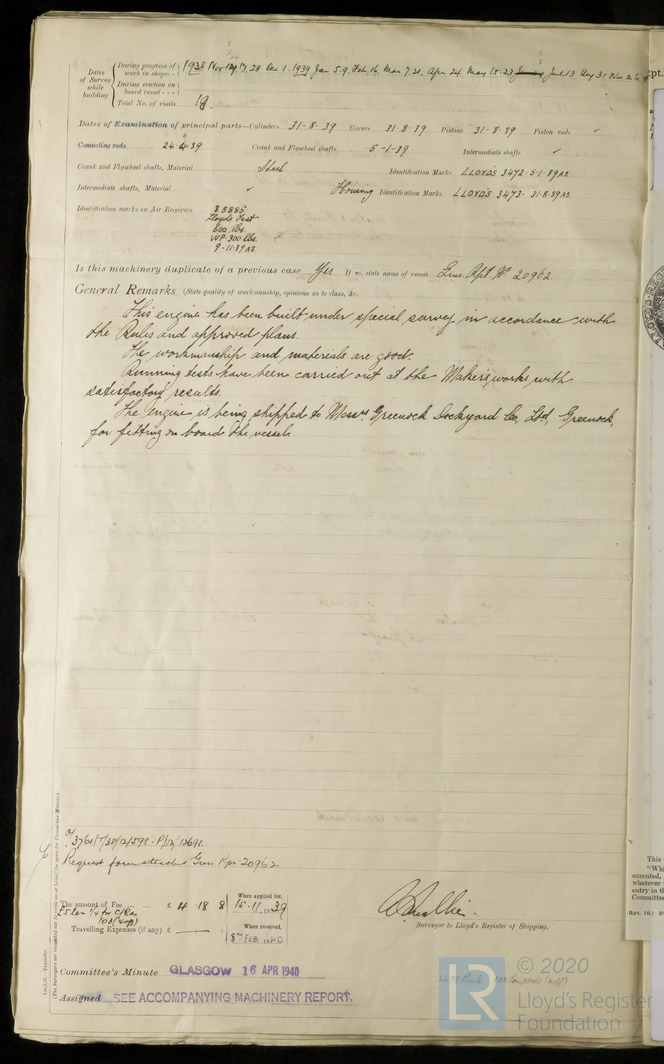 Dates of Survey while building
During progress of work in shops - - 1938 Nov 17, 28 Dec 1. 1939 Jan 5. 9. Feb 16. Mar 7. 21. Apr 24 May 15. 23 Jul 13 Aug 31 Nov 2. 6. 9
During erection on board vessel - - -
Total No. of visits 19.
Dates of Examination of principal parts—Cylinders 31-8-39 Covers 31-8-39 Pistons 31-8-39 Piston rods ✓
Connecting rods 24-4-39 Crank and Flywheel shafts 5-1-39 Intermediate shafts ✓
Crank and Flywheel shafts, Material Steel Identification Marks LLOYDS 3472-5-1-39 AS.
Intermediate shafts, Material ✓ Housing Identification Marks LLOYDS 3473- 31-8-39 AS.
Identification marks on Air Receivers S 8885
Lloyds Test
600 lbs.
WP-300 lbs.
9-11-39 AS
Is this machinery duplicate of a previous case Yes If so, state name of vessel Gms. Rpt No 20962.
General Remarks (State quality of workmanship, opinions as to class, &c.
This engine has been built under special survey in accordance with
the Rules and approved plans.
The workmanship and materials are good.
Running tests have been carried out at the Makers works with
satisfactory results.
The engine is being shipped to Messrs Greenock Dockyard Co, Ltd, Greenock,
for fitting on board the vessel.
Request form attached Gms Rpt 20962
The amount of Fee ... ... £ 4 18 8
When applied for, 15-11-1939
Travelling Expenses (if any) £ —
When received, 8TH FEB 1940
Surveyor to Lloyd's Register of Shipping.
Committee's Minute GLASGOW 16 APR 1940
Assigned SEE ACCOMPANYING MACHINERY REPORT.
This
"Whi
executed,
whatever
entry in th
Committee
(Rpt. 10.)
LR
© 2020
Lloyd's Register
Foundation